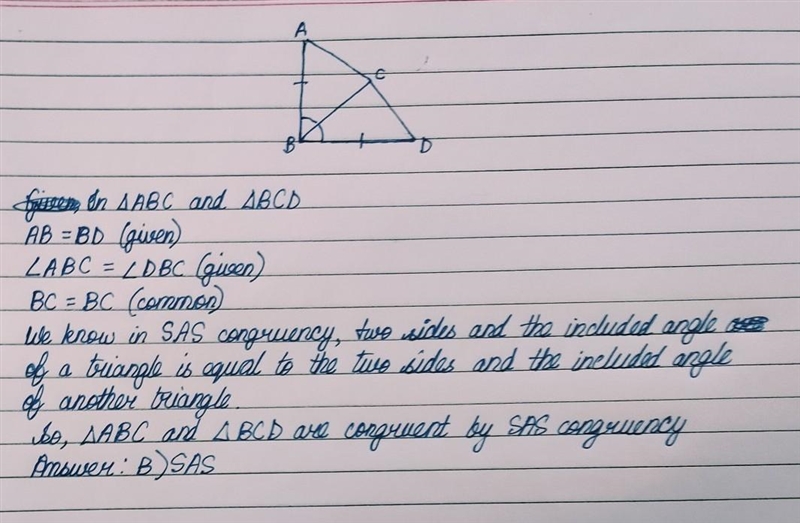 A
C
B
D
Given, In △ABC and △BCD
AB = BD (given)
∠ABC = ∠DBC (given)
BC = BC (common)
We know in SAS congruency, two sides and the included angle
of a triangle is equal to the two sides and the included angle
of another triangle.
So, △ABC and △BCD are congruent by SAS congruency
Answer: B) SAS